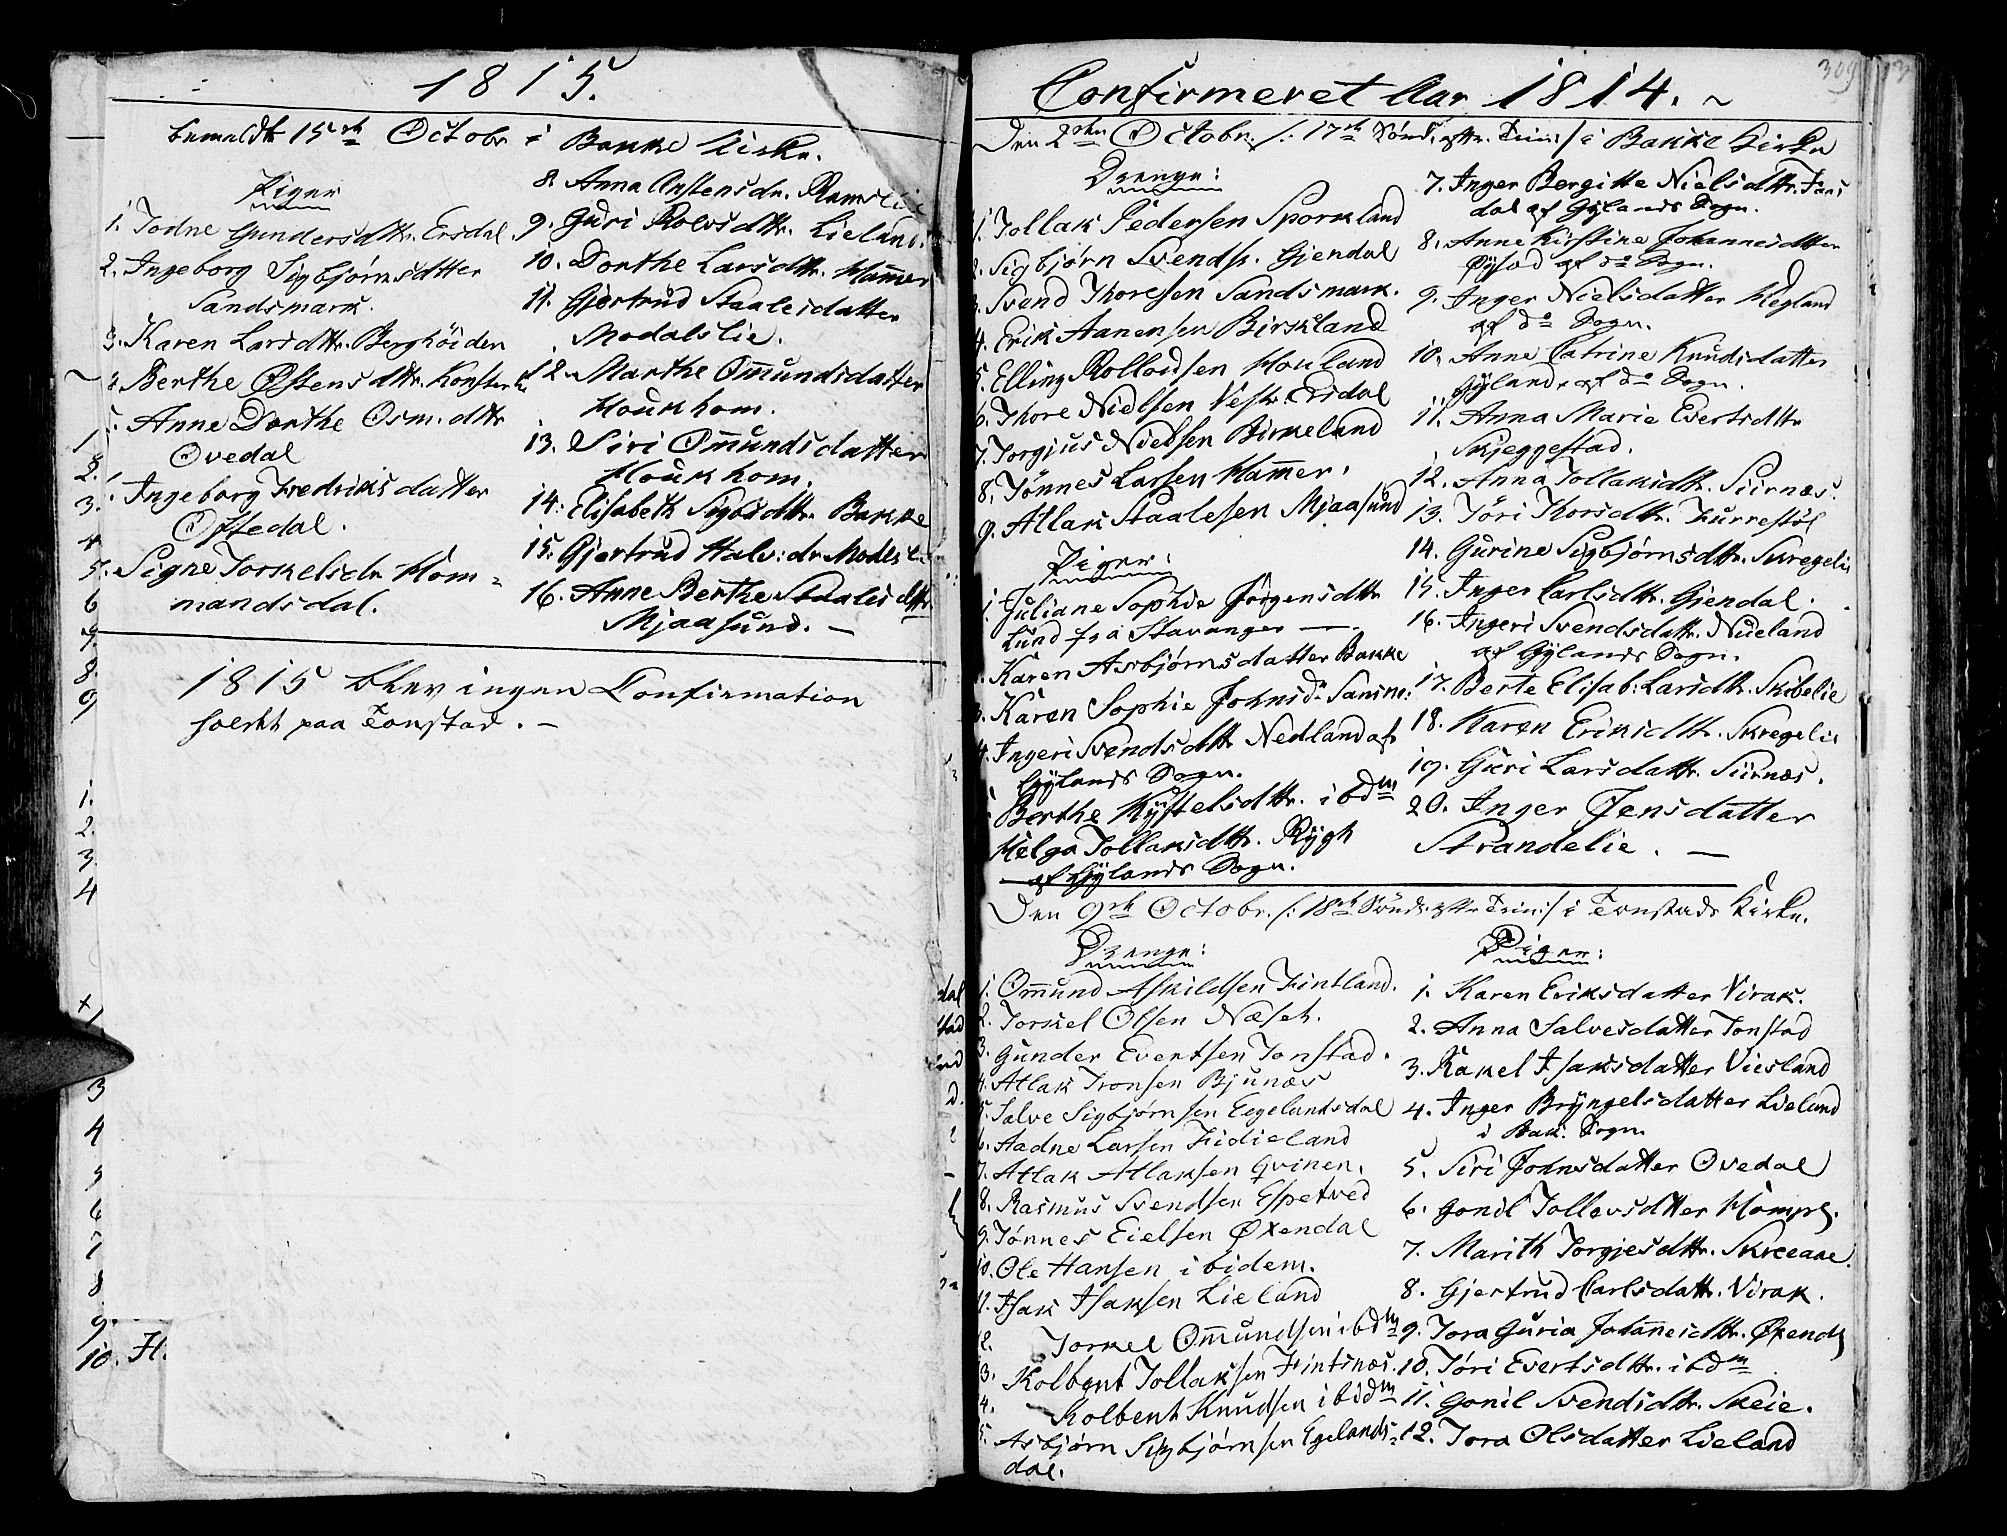 1815.
bemeldte 15de Octobr i Bakke Kirke.
Piger
1. Todne Gundersdttr. Ersdal.
2. Ingeborg Sigbjørnsdtter
Sandsmark.
3. Karen Larsdttr. Berghöiden
Berthe Østensdttr.
Anne Dorthe Osm. dttr
Ovedal
Ingeborg Fredriksdatter
Oftedal.
Signe Torkelsdr. Hom=
mandsdal.
8. Anna Anstensdr. Ramslie
9. Guri Rolvsdttr. Lieland.
10. Dorthe Larsdttr. Ham̄er
11. Gjertrud Staalesdatter
Modalslie.
12. Marthe Om̄undsdatter
Houkhom.
13. Siri Om̄undsdatter
Houkhom.
14. Elisabeth Sigbr.dttr. Bakke
15. Gjertrud Halv: dr.
16. Anne Berthe Staalesdttr
Mjaasund. —
1815 blev ingen Confirmation
holdt paa Tonstad. —
1
2.
3.
4
5.
6
7.
8.
9
1.
2.
3.
4
3
4
5
6
7
8
9.
10. H.
309
Confirmeret Aar 1814. ~
Den 2den Octobr. /: 17de Sönd. eftr. Trin: / i Bakke Kirke
Drenge:
1. Tollak Pedersen Sporkland
2. Sigbjørn Svends. Gjendal
3. Svend Thoresen Sandsmark.
4. Erik Aanensen Birkeland
5. Elling Rollousen Houland
6. Thore Nielsen Vestr. Ersdal
7. Torgjus Nielsen Birkeland
8. Tönnes Larsen Ham̄er.
9. Atlak Staalesen Mjaasund
Piger:
1. Juliane Sophie Jörgensdttr
Lund fra Stavanger —
2. Karen Asbjørnsdatter Bakke
3. Karen Sophie Johnsdr.
4. Ingeri Svendsdttr Nedland af
Gylands Sogn.
Berthe Kystelsdttr. ibdm
Helga Tollaksdttr. Rygh
af Gylands Sogn.
7. Inger Bergitte Nielsdttr.
dal af Gylands Sogn.
8. Anne Kirstine Johannesdtter
Øysæd af do Sogn.
9. Inger Nielsdatter Hegland
af do Sogn.
10. Anne Catrine Knudsdatter
Gyland, af do Sogn.
11. Anna Marie Evertsdttr
Skjeggestad.
12. Anna Tollaksdtr. Siirnæs.
13. Töri Thorsdttr. Furrestöl
14. Gurine Sigbjørnsdttr. Skregelie
15. Inger Carlsdttr. Gjendal.
16. Ingeri Svendsdattr. Nueland
af Gylands Sogn.
17. Berte Elisab: Larsdttr. Skibelie
18. Karen Eriksdttr. Skregelie
19. Guri Larsdattr. Siirnæs.
20. Inger Jensdatter
Strandelie. —
Den 9de Octobr. /: 18de Sönd. eftr. Trin: / i Tonstads Kirke.
Drenge:
1. Om̄und Askildsen Fintland.
2. Torkel Olsen Næset.
3. Gunder Evertsen Tonstad.
4. Atlak Tronsen Bjunæs
5. Salve Sigbjørnsen Eegelandsdal
6. Aadne Larsen Fidieland
7. Atlak Atlaksen Qvinen.
8. Rasmus Svendsen Espetved
9. Tönnes Eielsen Øxendal
10. Ole Hansen ibidem.
11. Isak Isaksen Lieland
12. Torkel Om̄undsen ibdm
3. Kolbent Tollaksen Fintsnæs.
4. Kolbent Knudsen ibidm
5. Asbjörn Sigbjörnsen Egelands=
dal.
Piger:
1. Karen Eriksdatter Virak.
2. Anna Salvesdatter Tonstad
3. Rakel Isaksdatter Viesland
4. Inger Bryngelsdatter Lieland
i Bak. Sogn
5. Siri Johnsdatter Ovedal
6. Gonil Tollevsdtter Hompl.
7. Marith Torgjesdttr. Skreeaae.
8. Gjertrud Carlsdattr. Virak.
9. Tora Guria Johannesdttr. Øxendl
10. Töri Evertsdttr. ibdm
11. Gonil Svendsdttr. Skeie.
12. Tora Olsdatter Lieland